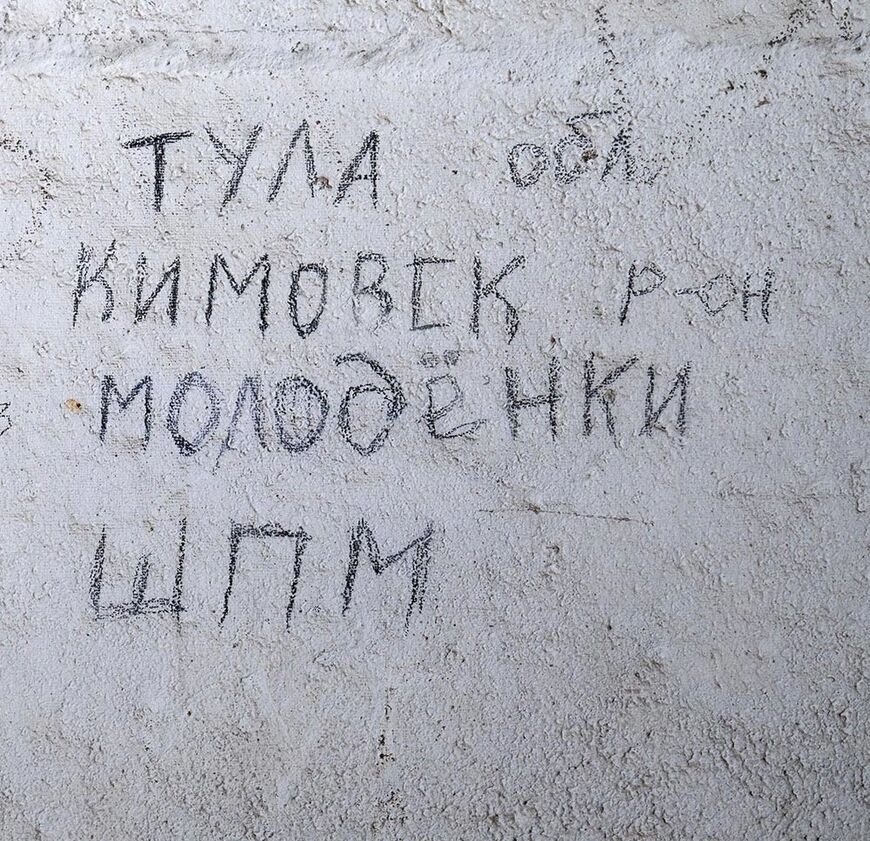 ТУЛА обл
КИМОВСК р-он
МОЛОДЁНКИ
ШПМ